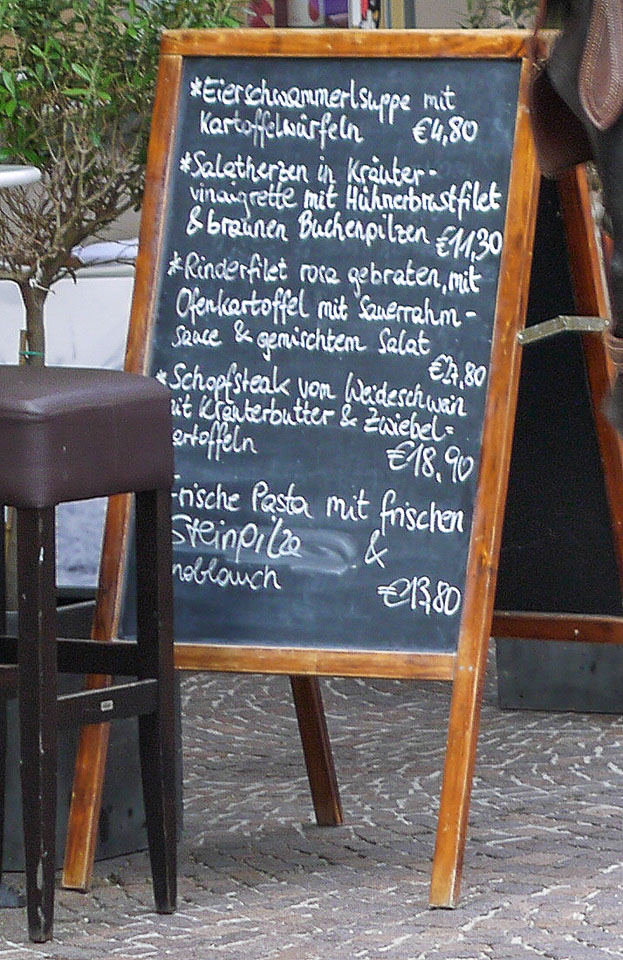 *Eierschwammerlsuppe mit
Kartoffelwürfeln €4,80
*Salatherzen in Kräuter-
vinaigrette mit Hühnerbrustfilet
& braunen Buchenpilzen €11,30
*Rinderfilet rosa gebraten, mit
Ofenkartoffel mit Sauerrahm-
sauce & gemischtem Salat
€27,80
*Schopfsteak vom Weideschwein
mit Kräuterbutter & Zwiebel-
artoffeln €18,90
Frische Pasta mit frischen
Steinpilze &
noblauch €13,80